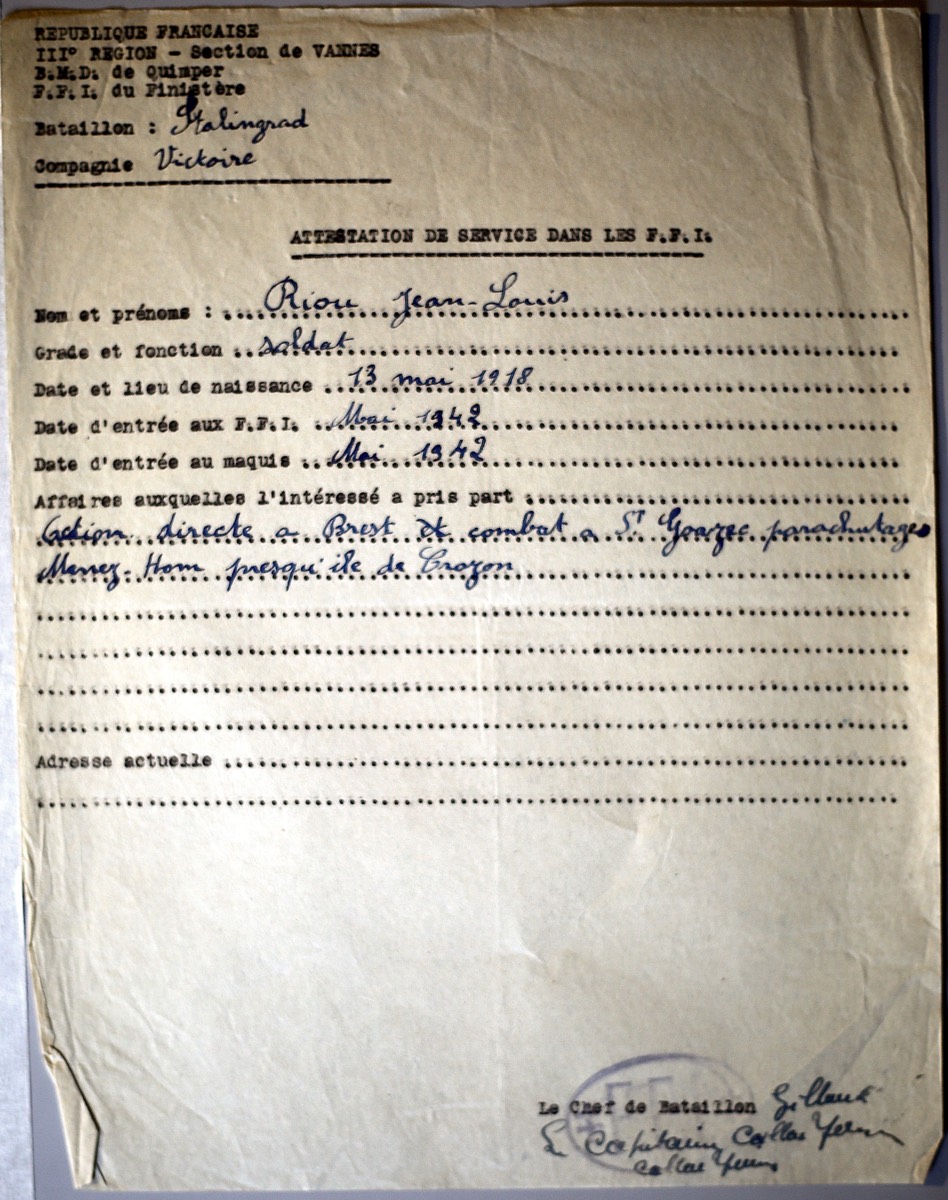 REPUBLIQUE FRANCAISE
III° REGION - Section de VANNES
B.M.D. de Quimper
F.F.I. du Finistère
Bataillon : Stalingrad
Compagnie Victoire
ATTESTATION DE SERVICE DANS LES F.F.I.
Nom et prénoms : Riou Jean-Louis
Grade et fonction soldat
Date et lieu de naissance 13 mai 1918
Date d'entrée aux F.F.I. Mai 1942
Date d'entrée au maquis Mai 1942
Affaires auxquelles l'intéressé a pris part
Action directe a Brest et combat a St Goazec parachutages
Menez-Hom presqu'ile de Crozon
Adresse actuelle
Le Chef de Bataillon
Le Capitaine